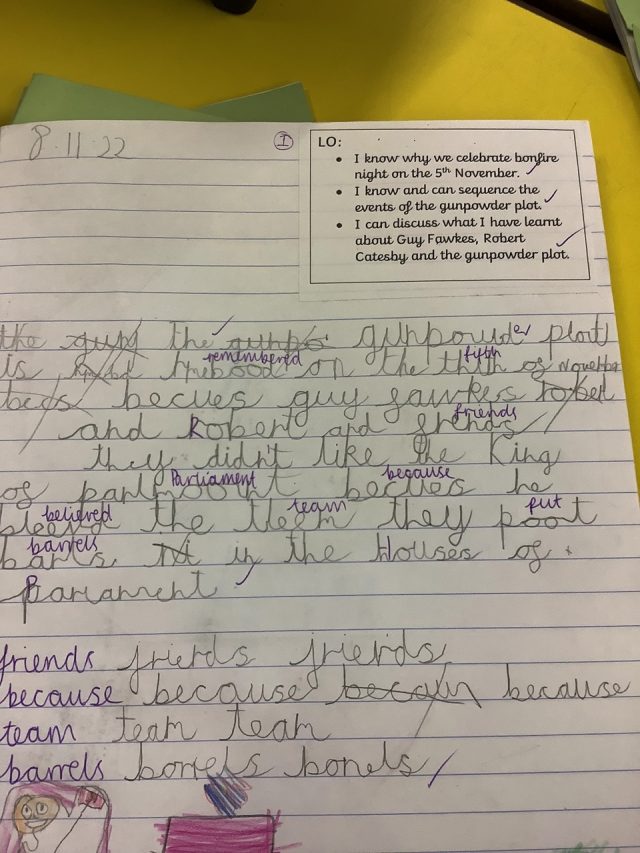 8.11.22
I
LO:
• I know why we celebrate bonfire
night on the 5th November.
• I know and can sequence the
events of the gunpowder plot.
• I can discuss what I have learnt
about Guy Fawkes, Robert
Catesby and the gunpowder plot.
the gunp the gunpo gunpouder plont
remembered fifth
is on the thith of November
becs becues guy fawkes robert
friends
and Robert and frends
they didn't like the King
Parliament because
of parlmount becues he
believed team put
bleevd the teem they poot
barrels
barls in the Houses of.
Parlament
friends frierds frierds
because because becaus because
team team team
barrels borrels borrels